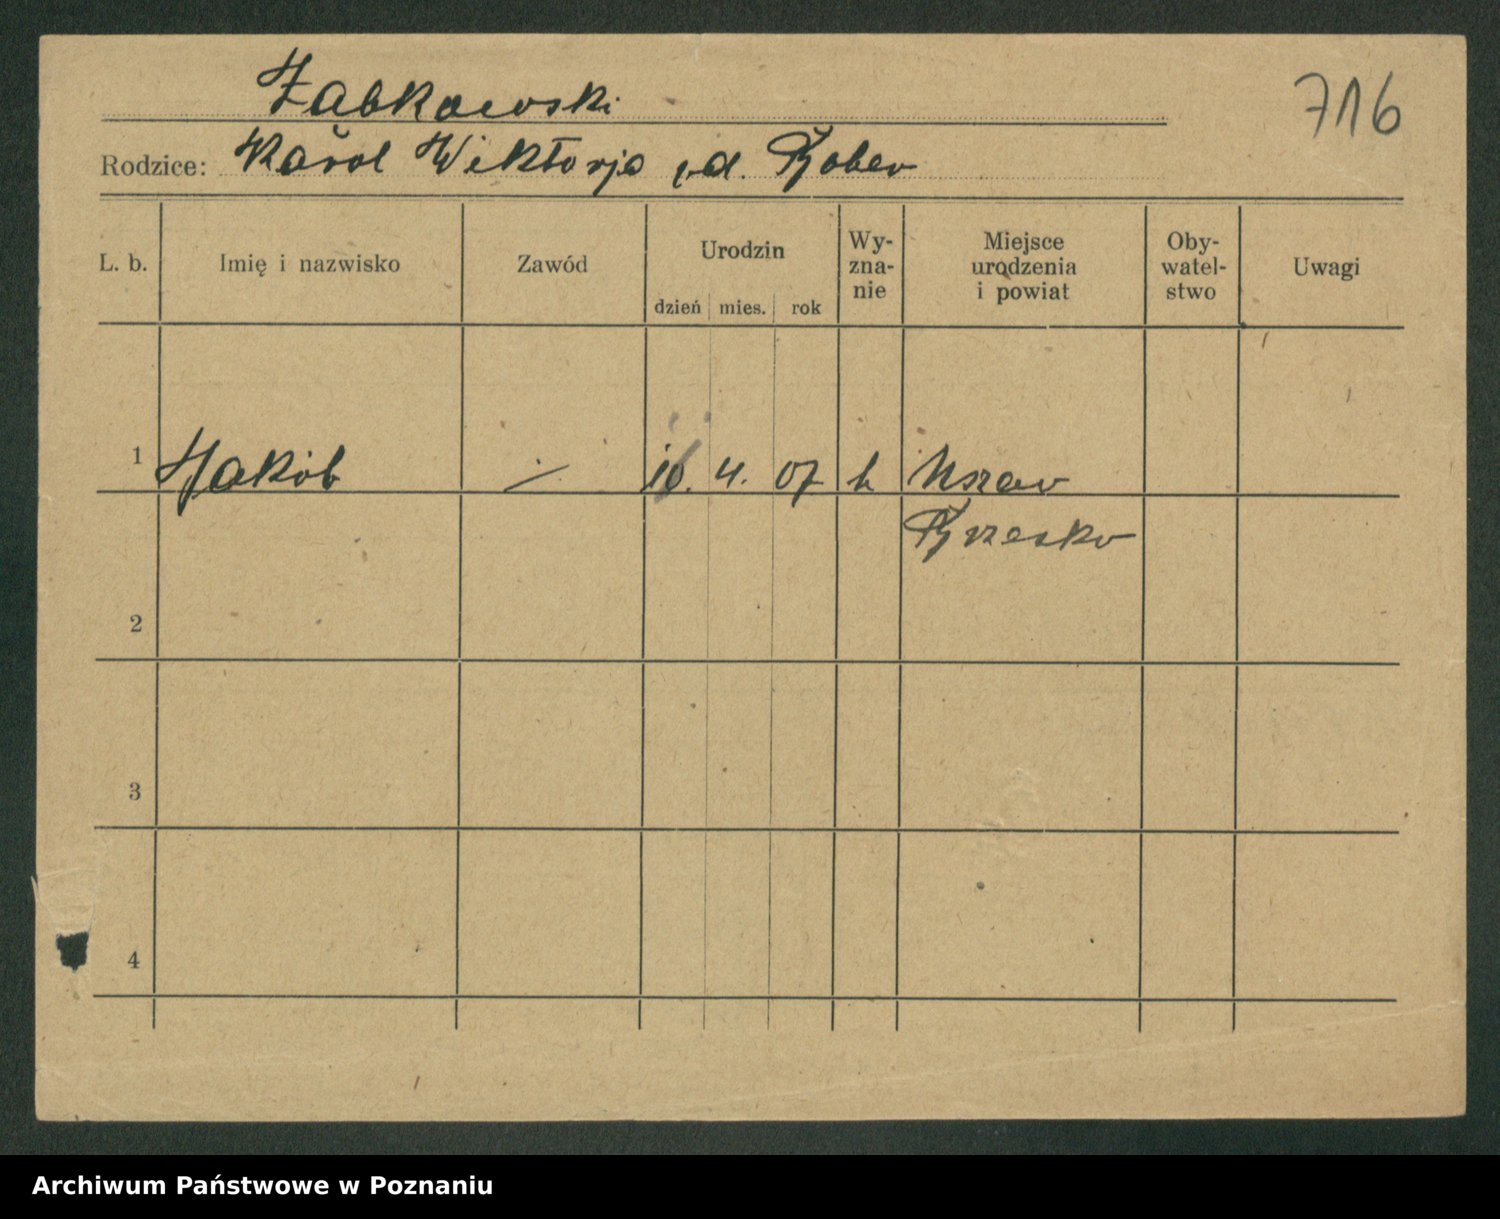 Żabkowski
716
Rodzice: Karol Wiktorja z d. Bober
L. b.
Imię i nazwisko
Zawód
Urodzin
dzień mies. rok
Wy-
zna-
nie
Miejsce
urodzenia
i powiat
Oby-
watel-
stwo
Uwagi
1 Jakób 4. 07 k Uszew
Brzesko
2
3
4
Archiwum Państwowe w Poznaniu